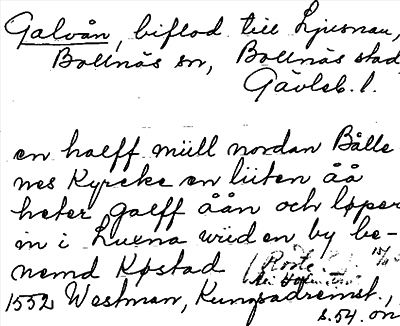 Galvån, biflod till Ljusnan,
Bollnäs sn, Bollnäs stad
Gävleb. l.
en halff müll nordan Bålle
nes Kyrcke en liiten åå
heter Galff åån och løper
in i Luena wiid en by be-
nemd Køstad (Roste
1552 Westman, Kungsådremst.,
s. 54. on